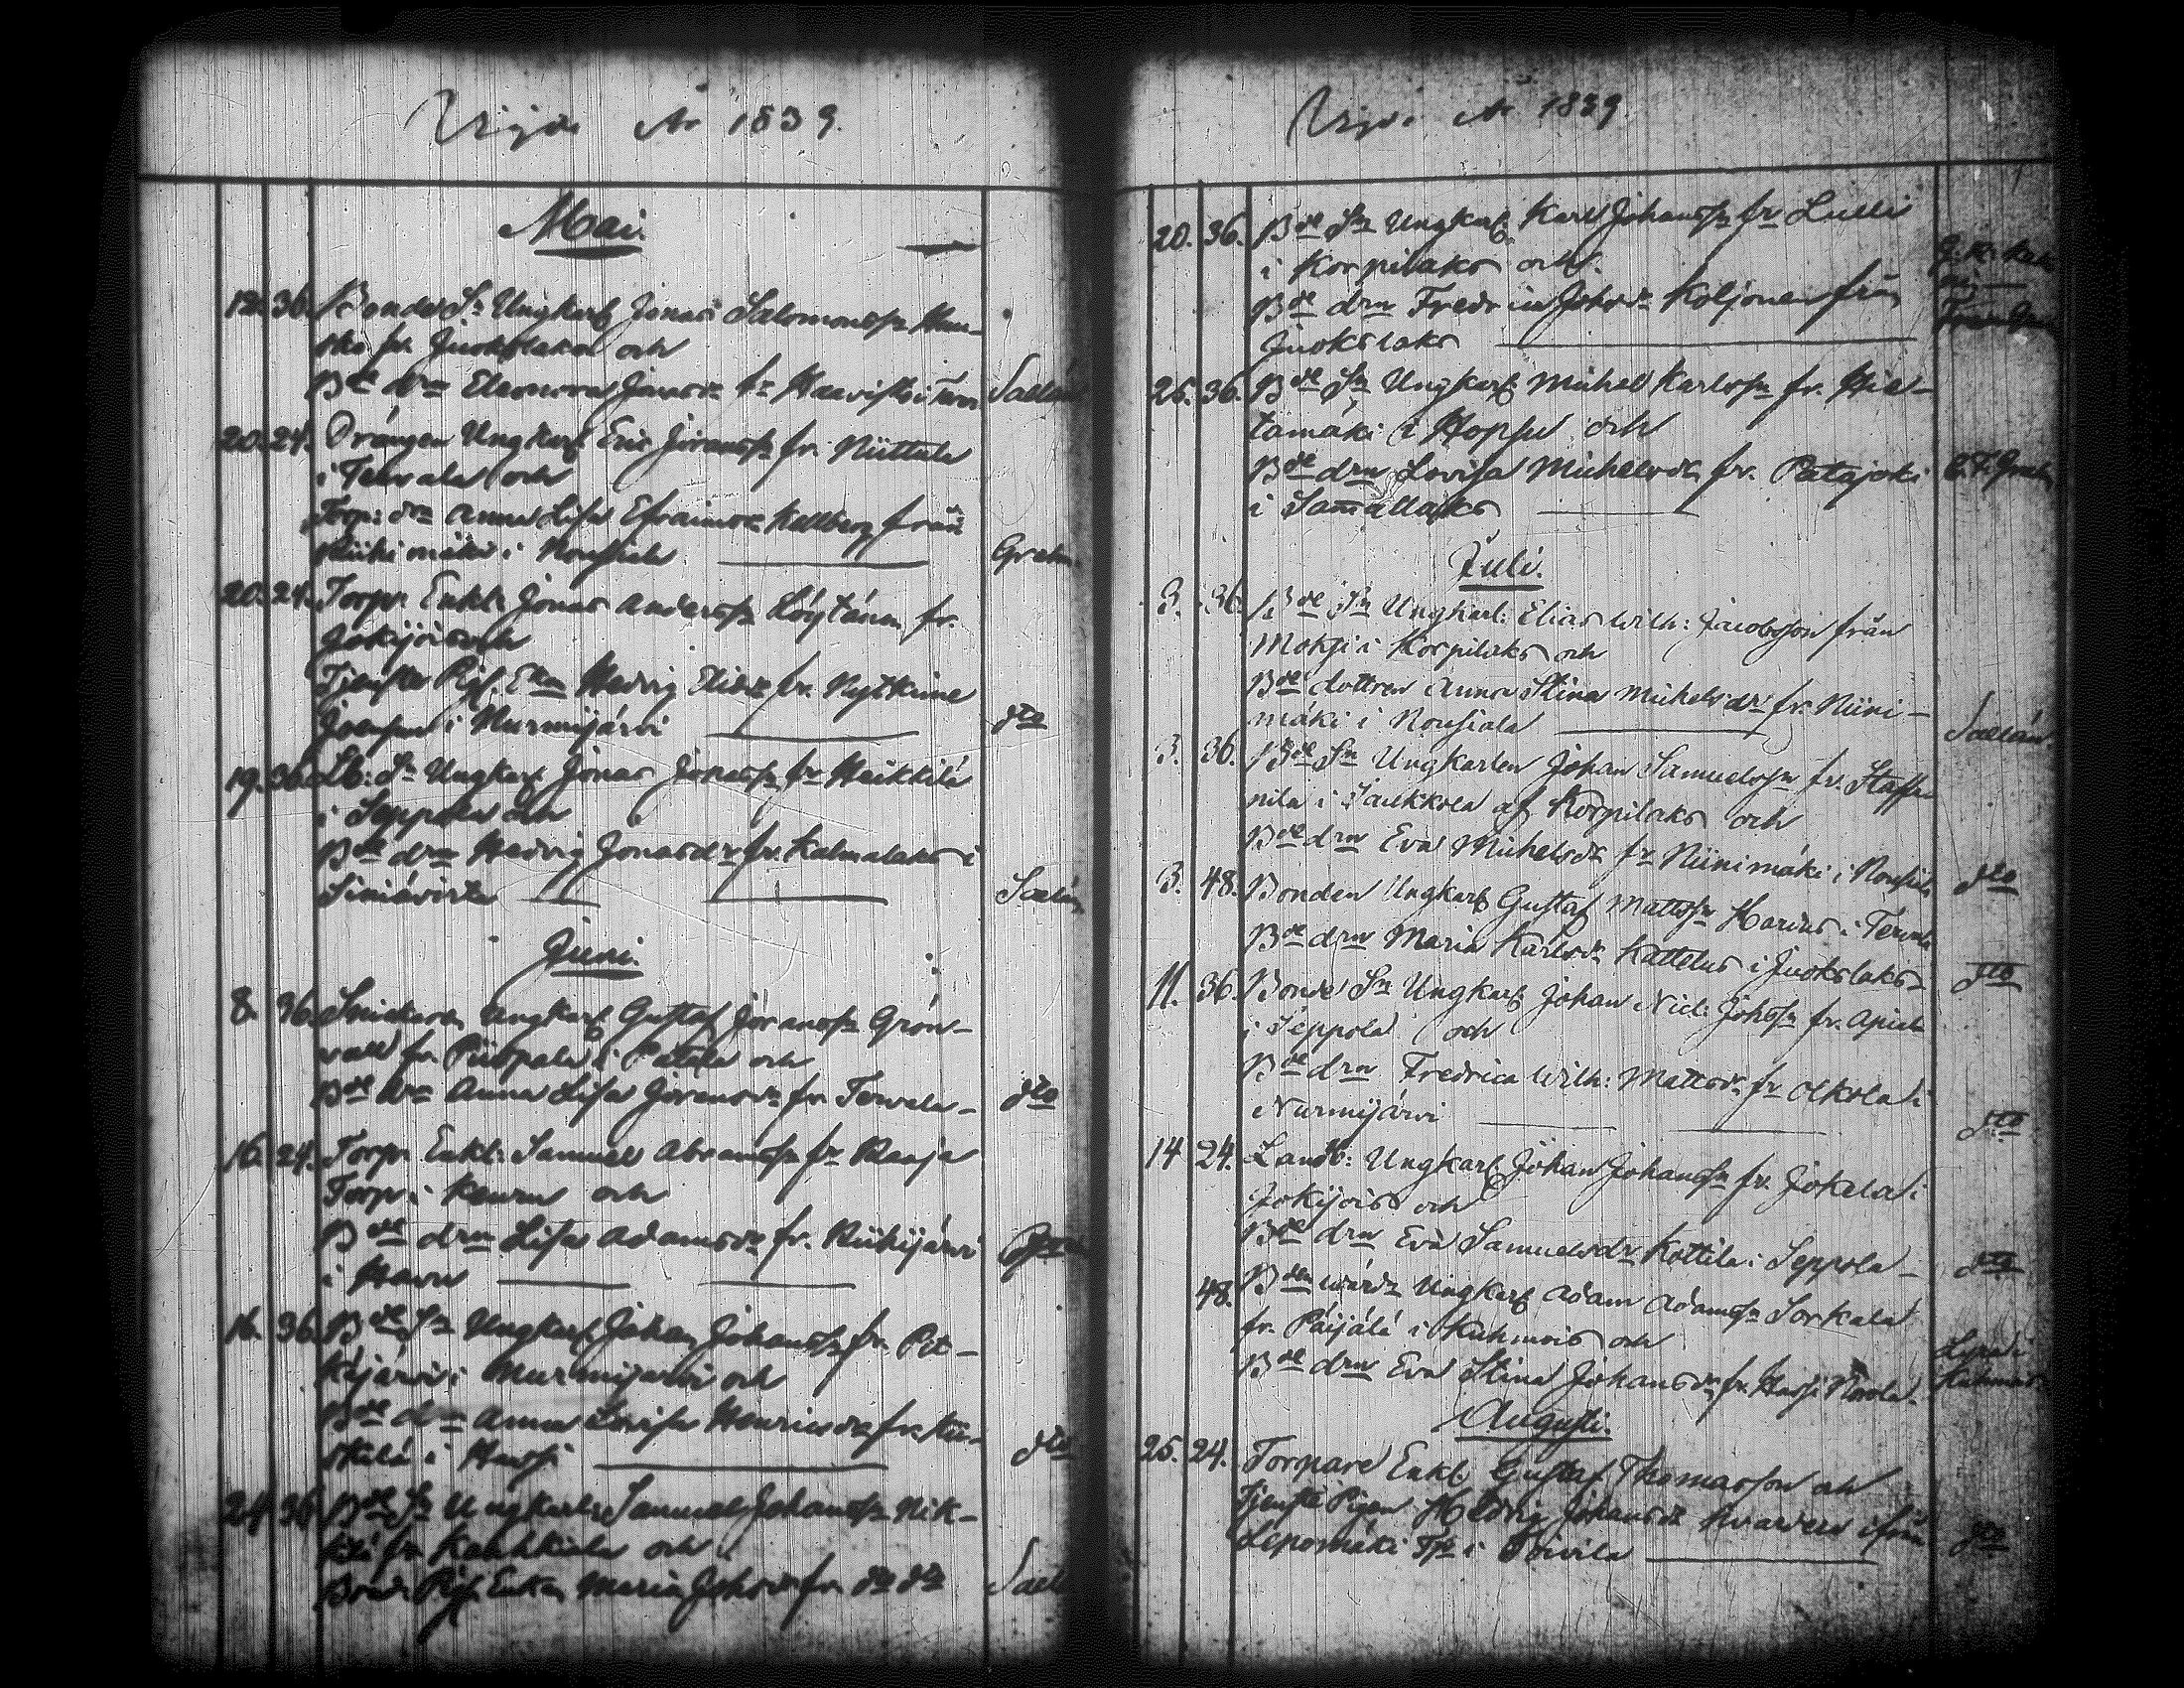 Vigde År 1839.
Mai.
12. 36. Bonde Sn Ungkarl Jonas Salomonss:n
fr. Juokslaks och
Bde drn Eleonora Jonasdr fr Haavisto i Sallén
20. 24. Drängen Ungkarl Eric Göranss:n fr. Niittula
i Tervala och
Torp: drn Anna Lisa Efraimsdr Kellberg från
Riihimäki i Nousiala Grahn.
20. 24. Torp. Enkl: Jonas Anderss:n Löytänen fr.
Jokijois och
Tjenste Pig. Ekn Hedvig Eliedr fr. Nytkime
i Nurmijärvi dto
19. 36. Lb: Sn Ungkarl Jonas Jonass:n fr Heikkilä
i Seppola och
Bde drn Hedvig Jonasdr fr. Kalmalaks i
Siniävirta
Juni.
8. 36. Snickaren Ungkarl Gustaf Göranss:n Grön-
vall fr. Piispala i Petula och
Bde drn Anna Lisa Göransdr fr Tervala - dto
16. 24. Torp. Enkl: Samuel Abramss:n fr Raaja
Torp i Keuru och
Bde drn Lisa Adamsdr fr. Riihijärvi
i Havu
16. 36. Bde Sn Ungkarl Johan Johanss:n fr. Pit-
käjärvi i Nurmijärvi och
Bde drn Anna Lovisa Henricsdr fr.
i Hassi dto
24. 36. Bde Sn Ungkarl: Samuel Johanss:n Nik-
fr Kahkiala och
Maria Johsdr fr. dto dto
Vigde År 1839.
20. 36. Bde Sn Ungkarl Karl Johanss:n fr Lulli
i Korpilaks och
Bde drn Fredrica Johsdr Koljonen från
Juokslaks
25. 36. Bde Sn Ungkarl Michel Karlss:n fr. Hie-
tamäki i Hopsu och
Bde drn Lovisa Michelsdr fr. Patajoki
i Sam̅allaks
Juli.
3. 36. Bde Sn Ungkarl: Elias Wilh: Jacobsson från
Moksi i Korpilaks och
Bde dottren Anna Stina Michelsdr fr. Niini-
mäki i Nousiala Sallén.
3. 36. Bde Sn Ungkarlen Johan Samuelss:n fr. Staffa
nila i Saukkola af Korpilaks och
Bde drn Eva Michelsdr fr Niinimäki i Nousiala dto
3. 48. Bonden Ungkarl Gustaf Mattss:n Harius i Tervala
Bde drn Maria Karlsdr Kattelus i Juokslaks - dto
11. 36. Bonde Sn Ungkarl Johan Nicl: Johss:n fr.
i Seppola och
Bde drn Fredrica Wilh: Mattsdr fr Olkola i
Nurmijärvi dto
14 24. Landb: Ungkarl Johan Johanss:n fr. Jokela i
Jokijois och
Bde drn Eva Samuelsdr Kottila i Seppola - dto
48. Bden Ungkarl Adam Adamss:n Sorkala
fr. Päijälä i Kuhmois och
Bde drn Eva Stina Johansdr fr. Hassi
Augusti.
25. 24. Torpare Enkl. Gustaf Thomasson och
Tjenste Pigan Hedvig Johansdr från
Lepomäki Tp i Toivila dto